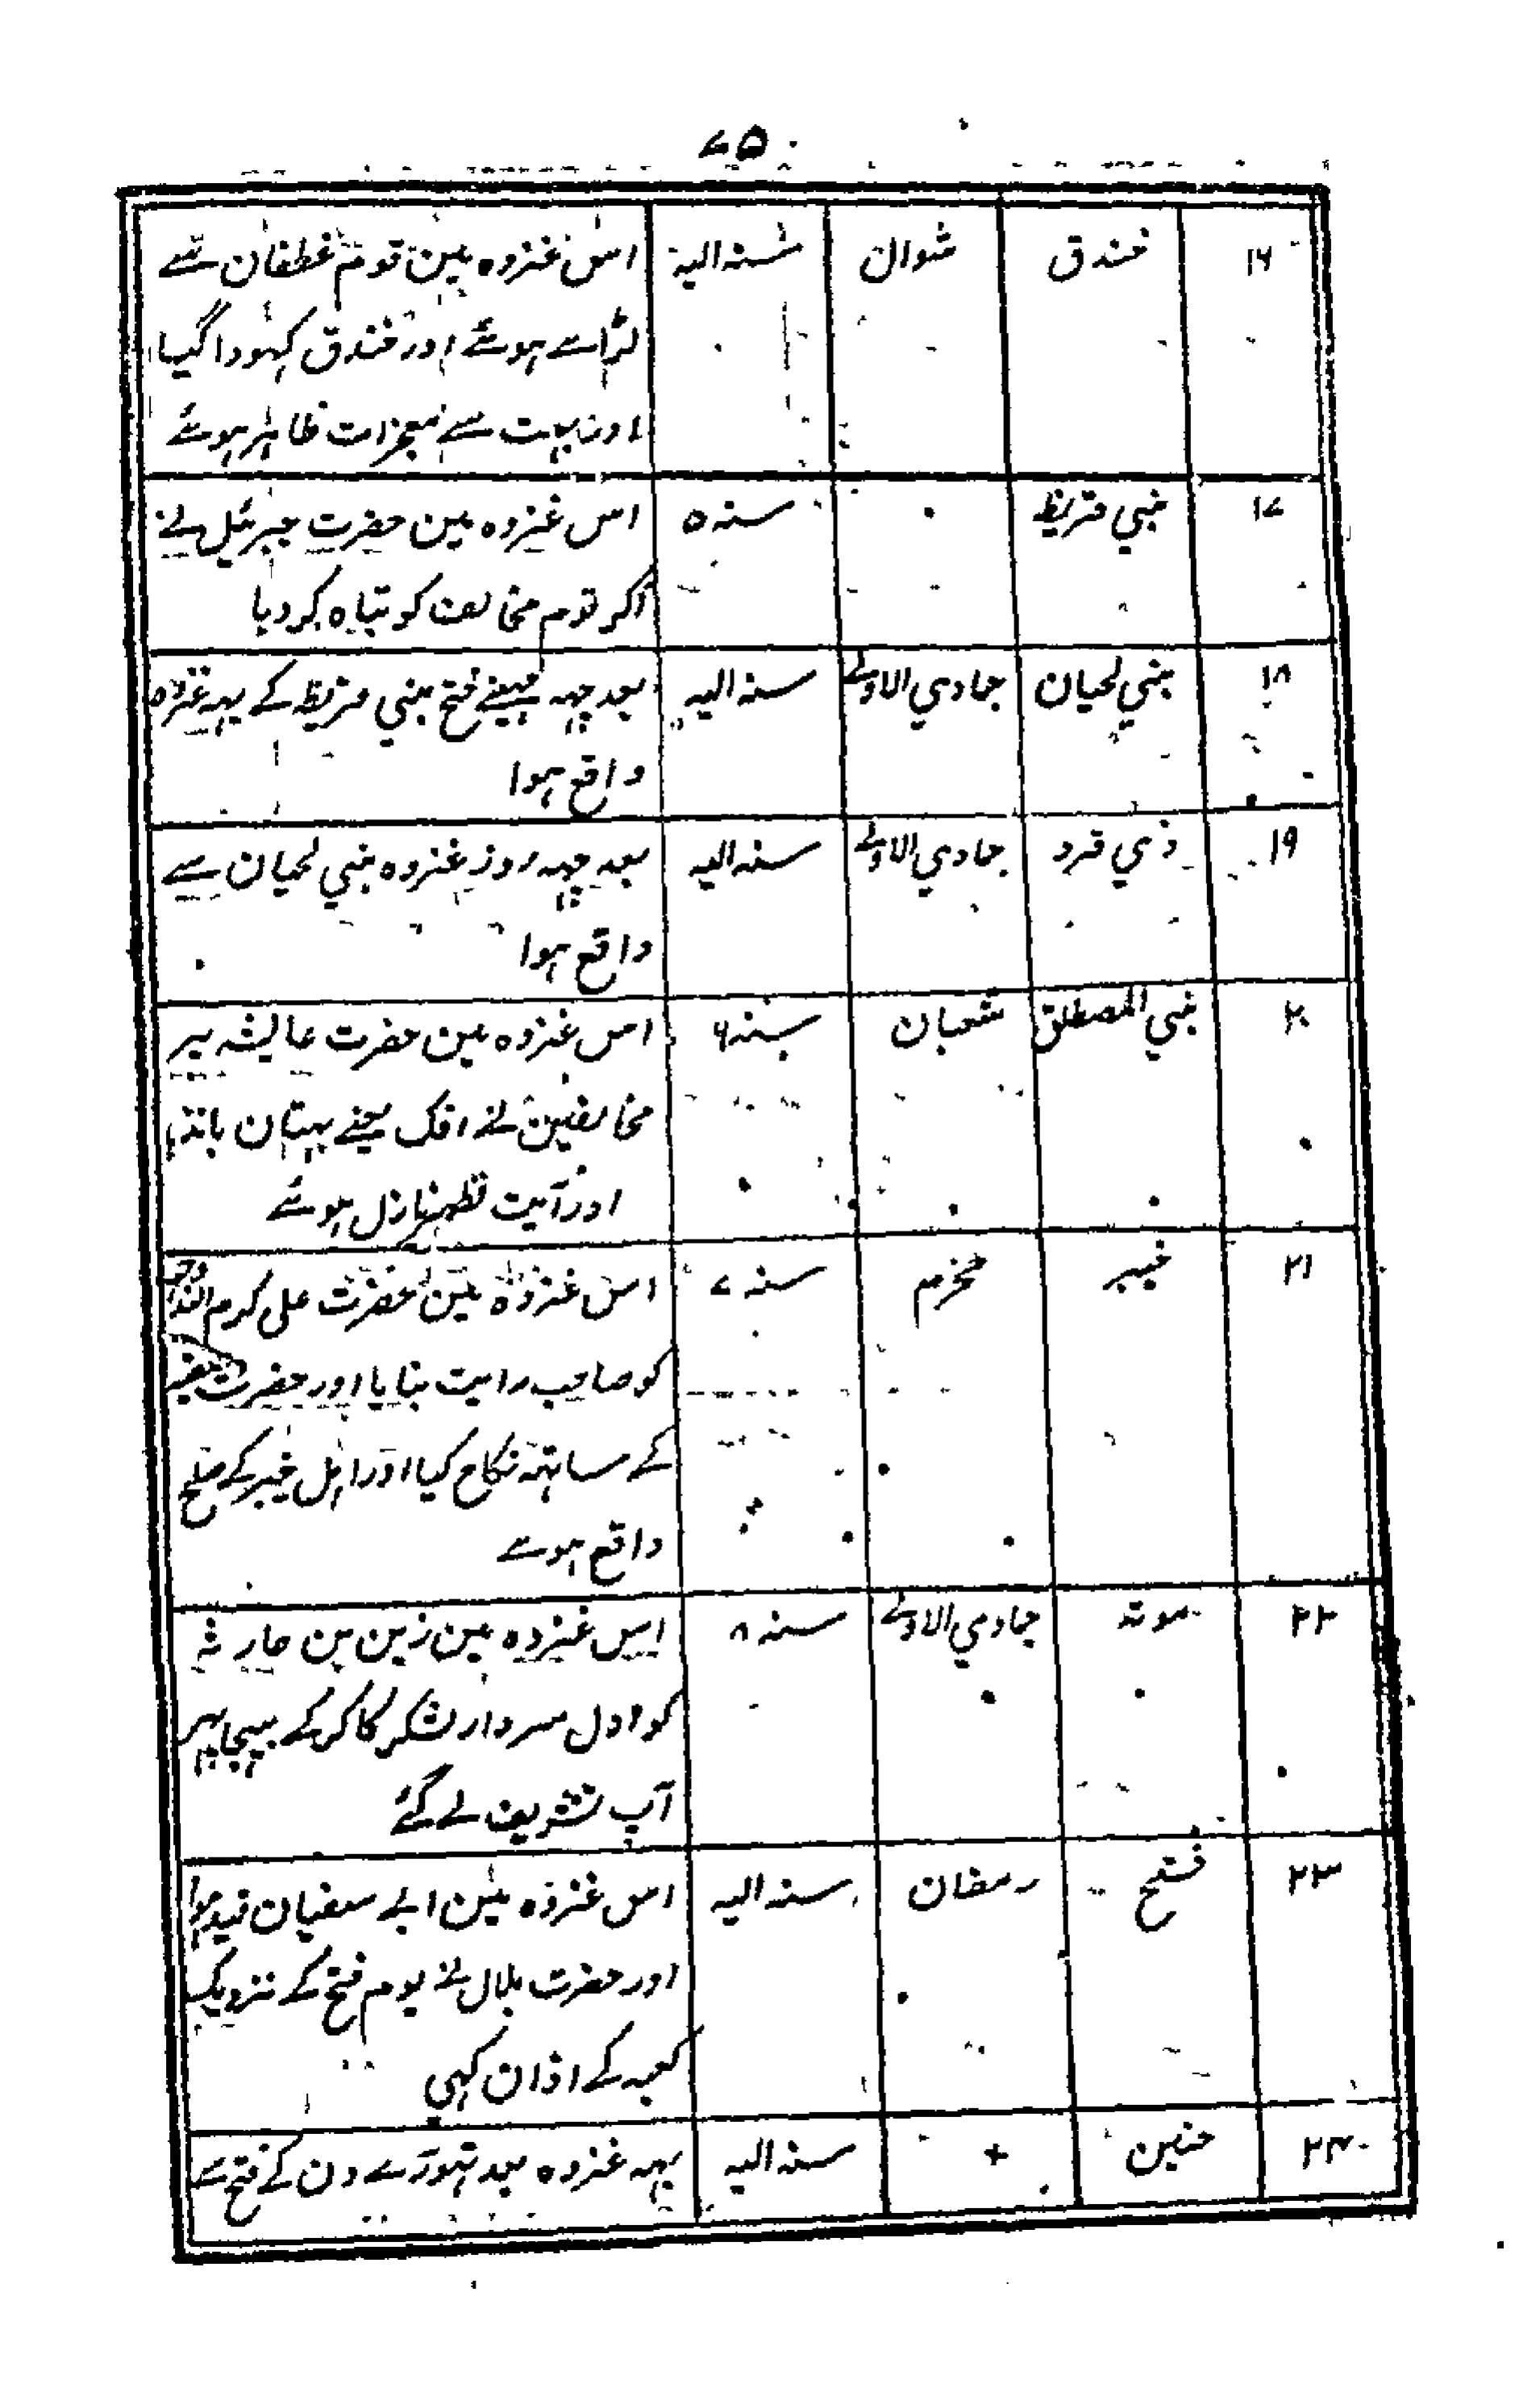 ۷۵
۱۶ خندق شوال سنہ الیہ اس غزوہ مین قوم غطفان سے
لڑاے ہوئے اور خندق کہودا گیا
اور بہت سے معجزات ظاہر ہوئے
۱۷ بنی قریظ سنہ ۵ اس غزوہ مین حضرت جبرئیل نے
آکر قوم مخالف کو تباہ کر دیا
۱۸ بنی لحیان جمادی الاولے سنہ الیہ بعد چہہ مہینے فتح بنی قریظ کے یہہ غزوہ
واقع ہوا
۱۹ ذی قرد جمادی الاولے سنہ الیہ بعد چہہ روز غزوہ بنی لحیان سے
واقع ہوا
۲۰ بنی المصطلق شعبان سنہ ۶ اس غزوہ مین حضرت عایشہ پر
مخالفین نے افک یعنے بہتان باندہا
اور آیت تطہیر نازل ہوئے
۲۱ خیبر محرم سنہ ۷ اس غزوہ مین حضرت علی کرم اللہ وجہہ
کو صاحب رایت بنایا اور حضرت
کے ساتہہ نکاح کیا اور اہل خیبر کے صلح
واقع ہوے
۲۲ موتہ جمادی الاولے سنہ ۸ اس غزوہ مین زین بن حارثہ
کو اول سردار لشکر کا کر کے بہیجا پہر
آپ تشریف لے گئے
۲۳ فتح رمضان سنہ الیہ اس غزوہ مین ابے سفیان قید ہوا
اور حضرت بلال نے یوم فتح کے نزدیک
کعبہ کے اذان کہی
۲۴ حنین + سنہ الیہ یہہ غزوہ بعد تہورے دن کے فتح سے